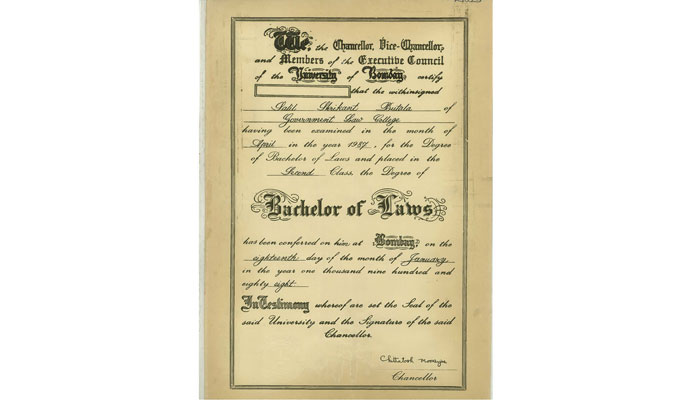 We, the Chancellor, Vice-Chancellor,
and Members of the Executive Council
of the University of Bombay, certify
that the withinsigned
Lalit Shrikant Butala of
Government Law College
having been examined in the month of
April in the year 1987, for the Degree
of Bachelor of Laws and placed in the
Second Class, the Degree of
Bachelor of Laws
has been conferred on him, at Bombay, on the
eighteenth day of the month of January,
in the year one thousand nine hundred and
eighty eight.
In Testimony whereof are set the Seal of the
said University and the Signature of the said
Chancellor.
Chancellor